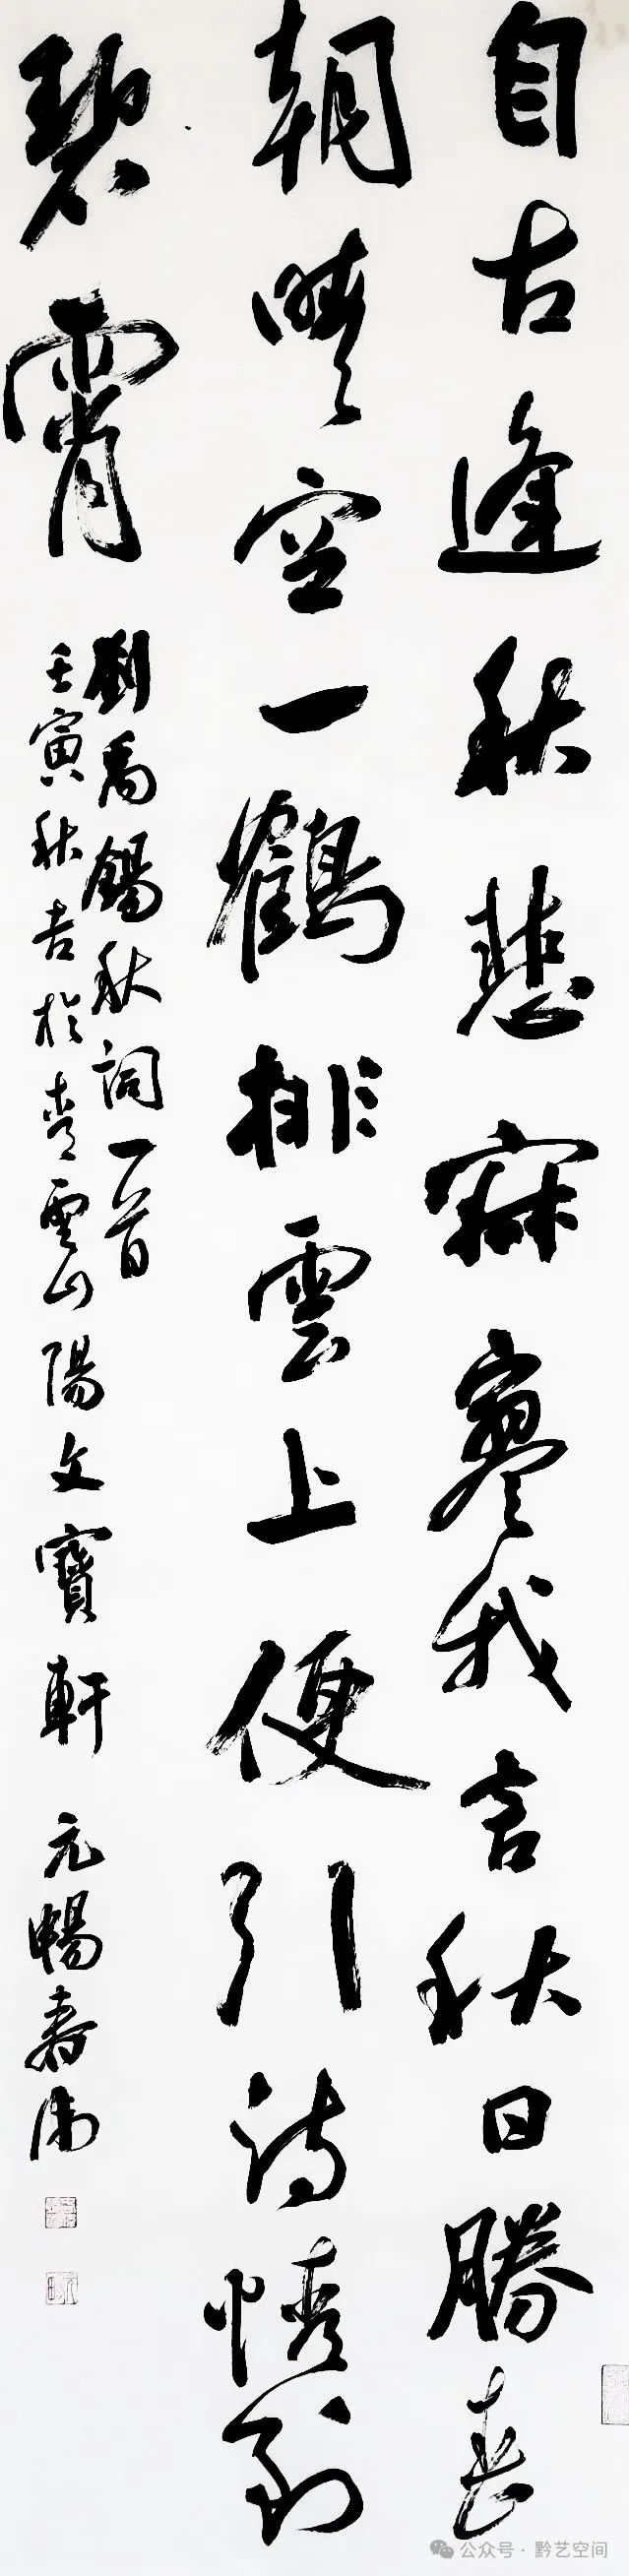 自古逢秋悲寂寥我言秋日勝春
朝晴空一鶴排雲上便引詩情到
碧霄
劉禹錫秋詞一首
壬寅秋吉於青雲山陽文寶軒 元暢壽
公众号 · 黔艺空间